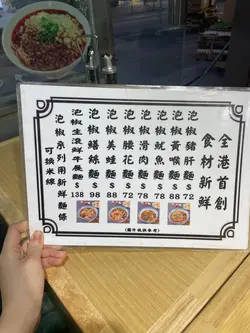 全港首創
食材新鮮
泡椒豬肝麵 $72
泡椒黃喉麵 $88
泡椒魷魚麵 $78
泡椒滑肉麵 $78
泡椒腰花麵 $78
泡椒美蛙麵 $88
泡椒鱔絲麵 $98
泡椒生滾鮮牛展麵 $138
泡椒系列用新鮮麵條
可換米線
(圖片祇供參考)